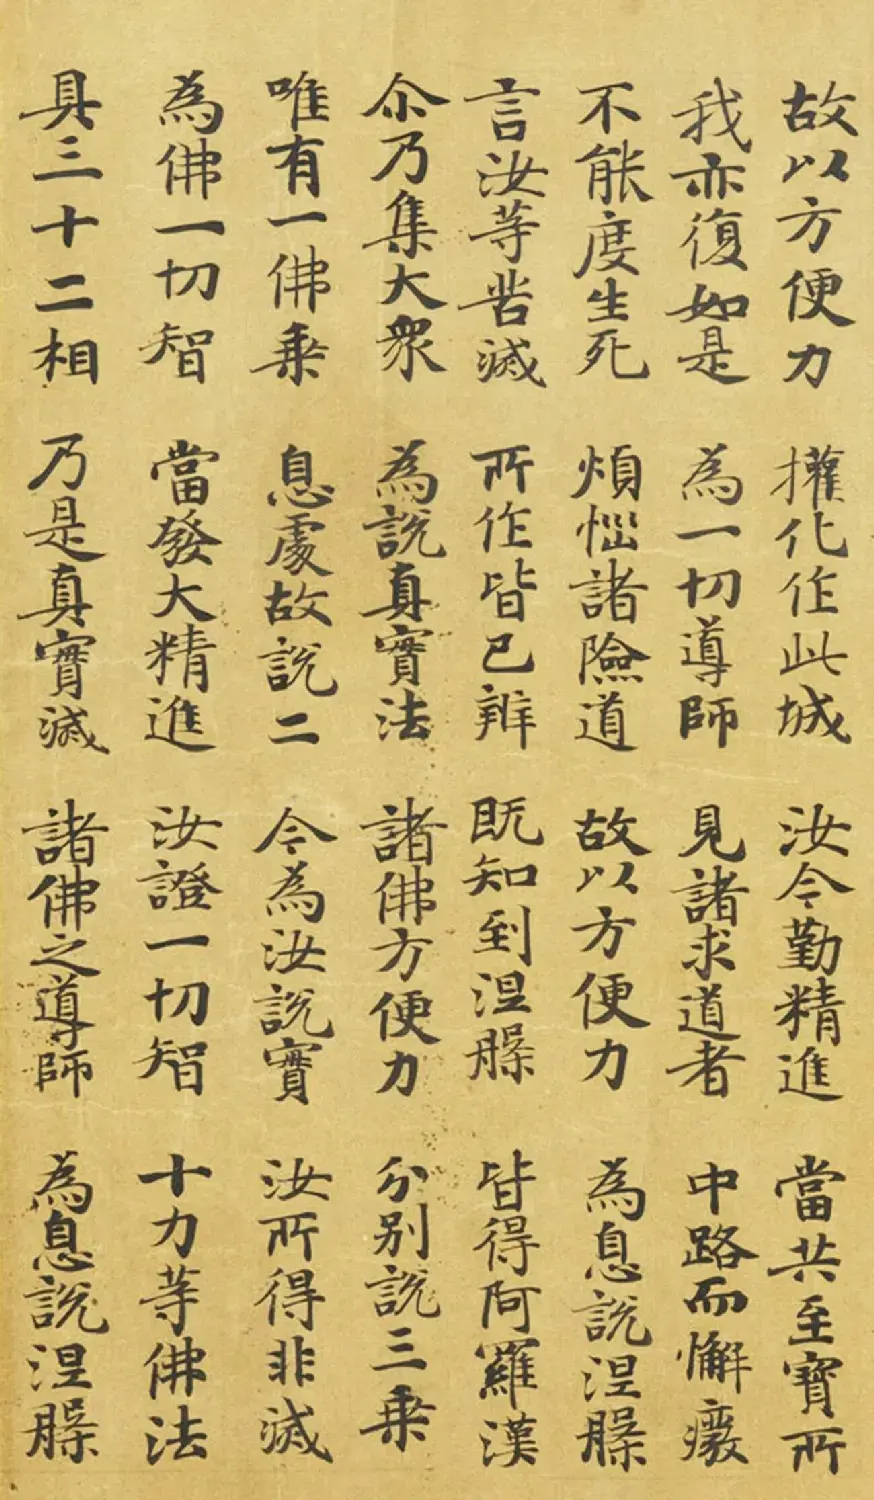 故以方便力 權化作此城 汝今勤精進 當共至寶所
我亦復如是 為一切導師 見諸求道者 中路而懈癈
不能度生死 煩惱諸險道 故以方便力 為息說涅槃
言汝等苦滅 所作皆已辨 既知到涅槃 皆得阿羅漢
尒乃集大眾 為說真實法 諸佛方便力 分別說三乗
唯有一佛乗 息處故說二 今為汝說實 汝所得非滅
為佛一切智 當發大精進 汝證一切智 十力等佛法
具三十二相 乃是真實滅 諸佛之導師 為息說涅槃